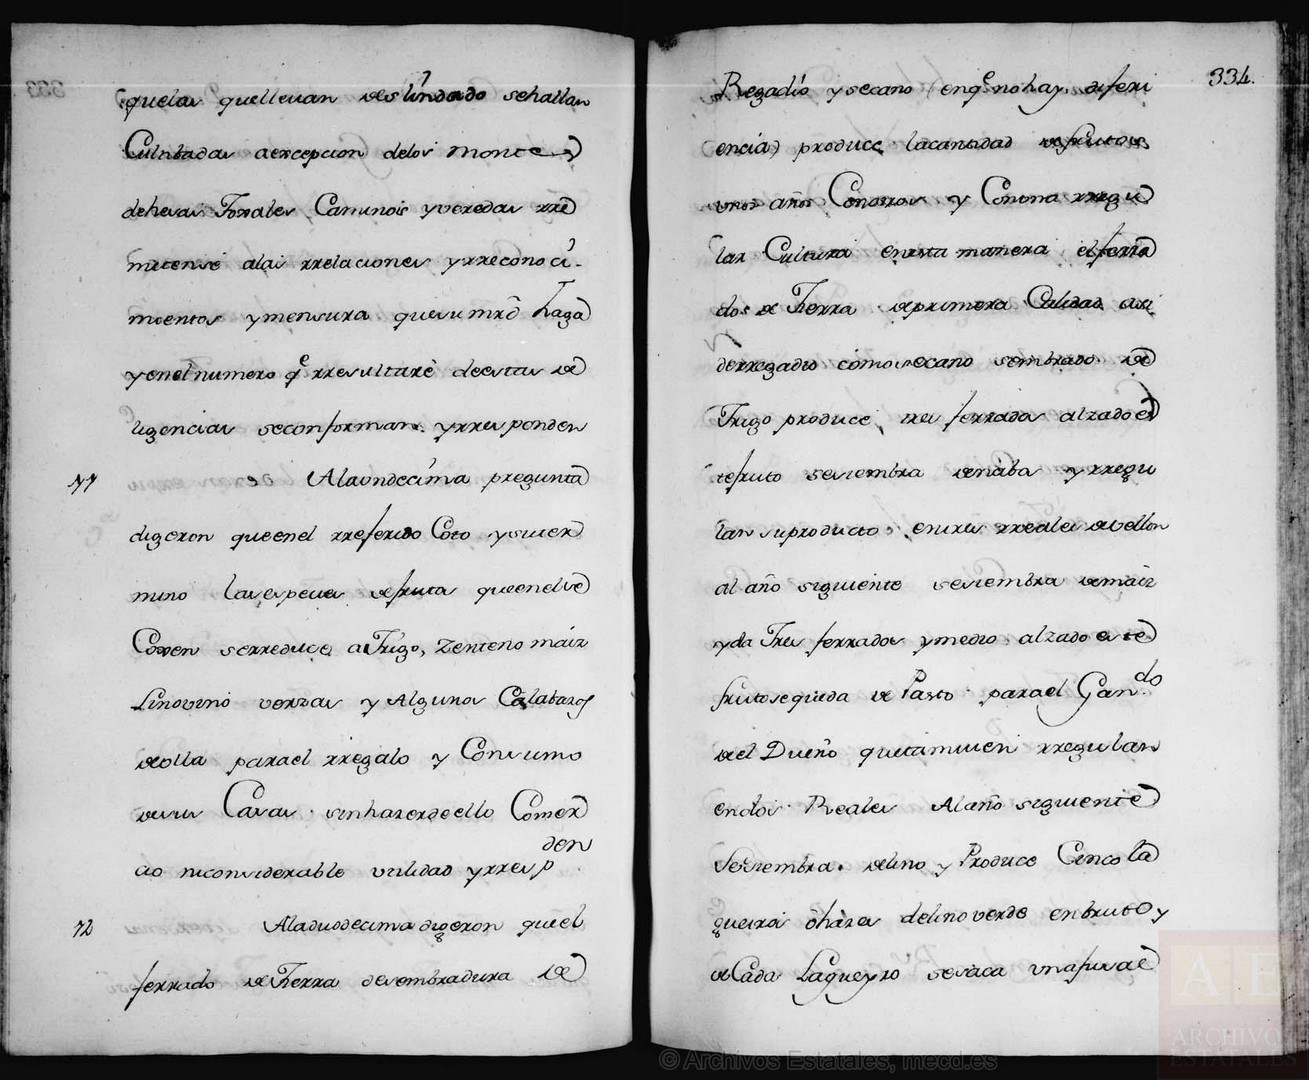 quelas quellevan deslindado sehallan
Cultibadas aexcepcion delos montes
dehesas Forales Caminos yveredas rre
mitense alas rrelaciones yrreconoci-
mientos ymensura quesu mrd haga
yenel numero q rresultare deestas de
ligencias seconforman yrresponden
11 Alaundecima pregunta
digeron queenel rreferido Coto ysuter
mino lasespecies defruta queendhe
Cojen serreduce aTrigo, Zenteno maiz
Linovino verzas y Algunos Calabazos
deolla parael rregalo y Consumo
desus Casas sinhazerdeello Comer
den
cio niconsiderable utilidad yrresp
12 Aladuodecima digeron quel
ferrado deTierra desembradura de
334.
Regadio ysecano (enq nohay diferi
encia) produce lacantidad defrutos
unos años Conotros y Conuna rregu
lar Cultura enesta manera elferra
dos de Tierra deprimera Calidad asi
derregadio comosecano sembrado de
Trigo produce tres ferrados alzado es
tefruto sesiembra denaba yrregu
lan suproducto entres rreales devellon
al año siguiente sesiembra demaiz
yda Tres ferrados ymedio alzado este
frutosequeda de Pasto parael Gan.do
del Dueño quetamvien rregulan
endos Reales Alaño siguiente
Sesiembra delino y Produce Cinco la
gueiros óhazes delinoverde enbruto y
deCada Lagueyro sesaca unafusale
© Archivos Estatales, mecd.es
AE
ARCHIVOS
ESTATALES